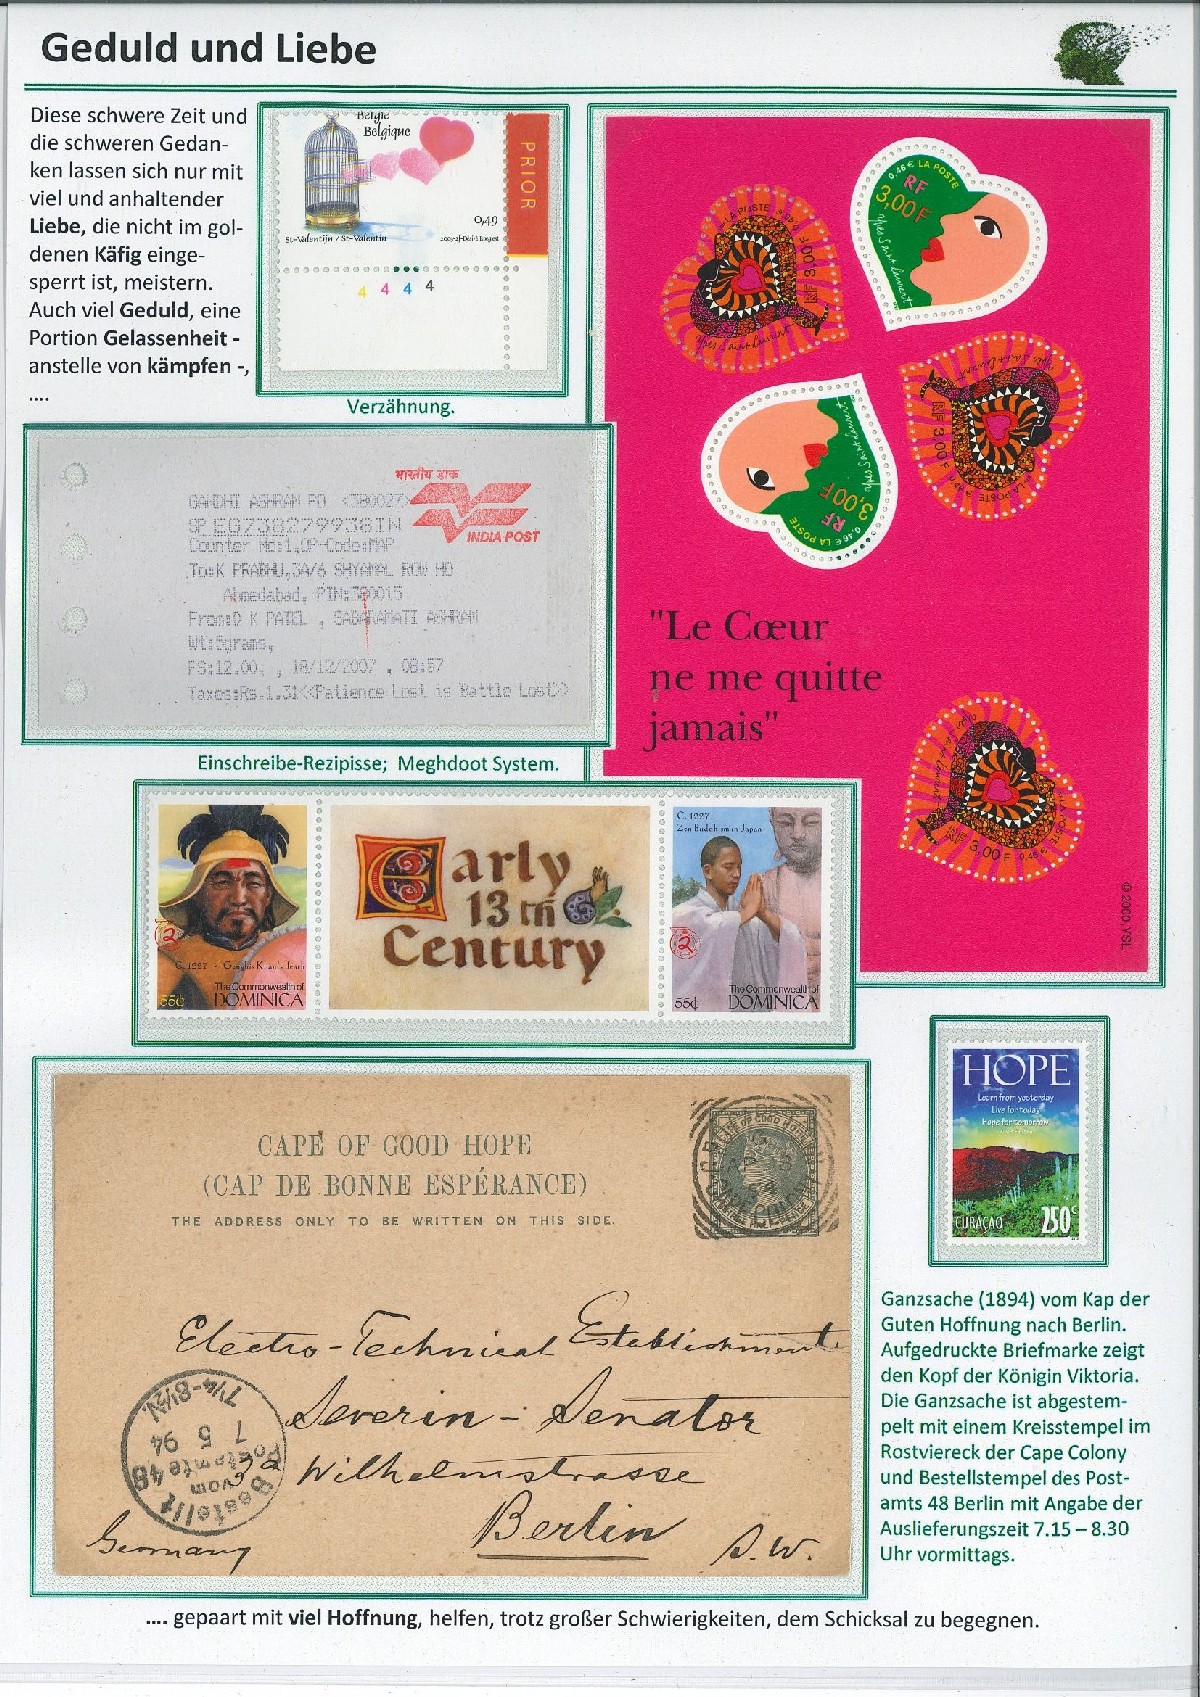 Geduld und Liebe
Diese schwere Zeit und
die schweren Gedan-
ken lassen sich nur mit
viel und anhaltender
Liebe, die nicht im gol-
denen Käfig einge-
sperrt ist, meistern.
Auch viel Geduld, eine
Portion Gelassenheit -
anstelle von kämpfen -,
....
België
Belgique
PRIOR
0,49
St-Valentijn / St-Valentin
4 4 4 4
Verzähnung.
0,46 € LA POSTE
RF
3,00 F
Yves Saint Laurent
LA POSTE
RF 3,00 F
Yves Saint Laurent
Yves Saint Laurent
RF 3,00 F
LA POSTE
Yves Saint Laurent
3,00 F
RF
0,46 € LA POSTE
"Le Cœur
ne me quitte
jamais"
LA POSTE
3,00 F 0,46 €
© 2000, YSL
भारतीय डाक
INDIA POST
GANDHI ASHRAM PO <380027>
EQ738279938IN
Counter No:1,OP-Code:MAP
To:K PRABHU,3A/6 SHYAMAL ROW HO
Ahmedabad, PIN:380015
From:D K PATEL , SABARAMATI ASHRAM
Wt:5grams,
PS:12.00, , 18/12/2007 , 08:57
Taxes:Rs.1.31<<Patience Lost is Battle Lost>>
Einschreibe-Rezipisse; Meghdoot System.
C. 1227 - Genghis Khan's death
55¢
The Commonwealth of
DOMINICA
Early
13th
Century
C. 1227
Zen Buddhism in Japan
55¢
The Commonwealth of
DOMINICA
CAPE OF GOOD HOPE
(CAP DE BONNE ESPÉRANCE)
THE ADDRESS ONLY TO BE WRITTEN ON THIS SIDE.
Electro-Technical Establishment
Severin-Senator
3a Wilhelmstrasse
Berlin
S.W.
Germany
Bestellt
vom
Postamte 48
7 5 94
7¼-8½V.
HOPE
Learn from yesterday
Live for today
Hope for tomorrow
CURAÇAO
250c
Ganzsache (1894) vom Kap der
Guten Hoffnung nach Berlin.
Aufgedruckte Briefmarke zeigt
den Kopf der Königin Viktoria.
Die Ganzsache ist abgestem-
pelt mit einem Kreisstempel im
Rostviereck der Cape Colony
und Bestellstempel des Post-
amts 48 Berlin mit Angabe der
Auslieferungszeit 7.15 – 8.30
Uhr vormittags.
.... gepaart mit viel Hoffnung, helfen, trotz großer Schwierigkeiten, dem Schicksal zu begegnen.